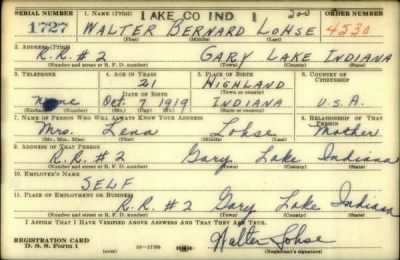 SERIAL NUMBER 1. NAME (Print) LAKE CO IND 1 200 ORDER NUMBER
1727 WALTER BERNARD LOHSE 4530
(First) (Middle) (Last)
2. ADDRESS (Print)
R.R. # 2 GARY LAKE INDIANA
(Number and street or R. F. D. number) (Town) (County) (State)
3. TELEPHONE 4. AGE IN YEARS 5. PLACE OF BIRTH 6. COUNTRY OF CITIZENSHIP
21 HIGHLAND
DATE OF BIRTH (Town or county)
none Oct. 7 1919 INDIANA U.S.A.
(Exchange) (Number) (Mo.) (Day) (Yr.) (State or country)
7. NAME OF PERSON WHO WILL ALWAYS KNOW YOUR ADDRESS 8. RELATIONSHIP OF THAT PERSON
Mrs. Lena Lohse Mother
(Mr., Mrs., Miss) (First) (Middle) (Last)
9. ADDRESS OF THAT PERSON
R.R. # 2 Gary, Lake Indiana
(Number and street or R. F. D. number) (Town) (County) (State)
10. EMPLOYER'S NAME
SELF
11. PLACE OF EMPLOYMENT OR BUSINESS
R.R. # 2 Gary Lake Indiana
(Number and street or R. F. D. number) (Town) (County) (State)
I AFFIRM THAT I HAVE VERIFIED ABOVE ANSWERS AND THAT THEY ARE TRUE.
REGISTRATION CARD Walter Lohse
D. S. S. Form 1 (Registrant's signature)